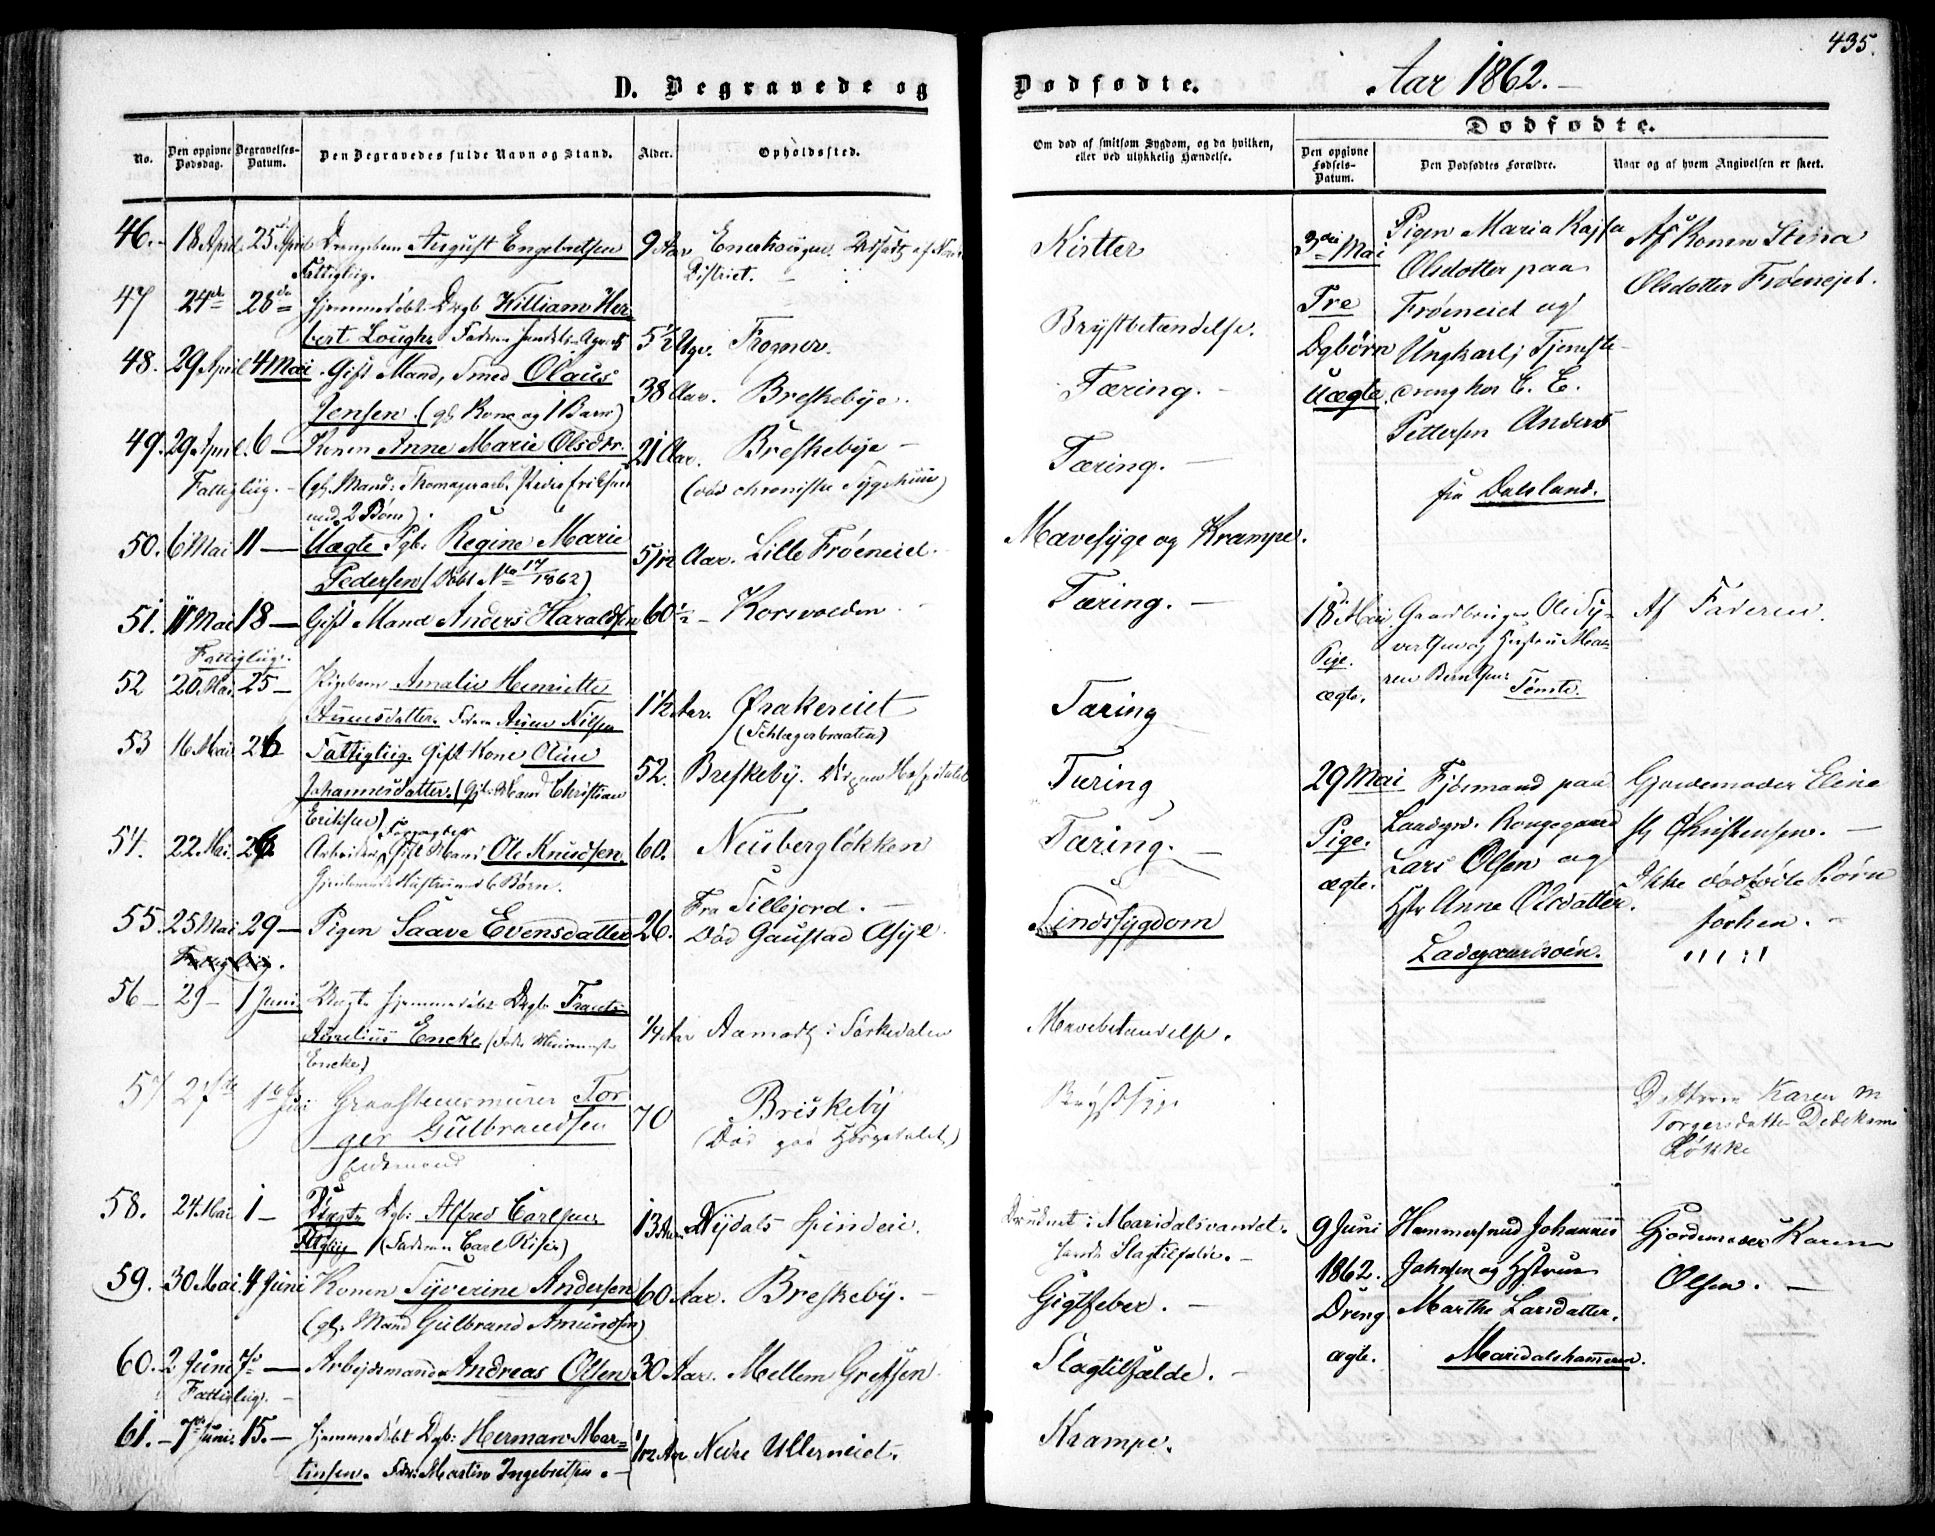 435.
D. Begravede og Dødfødte. Aar 1862.-
No.
Den opgivne Dødsdag.
Begravelses-Datum.
Den Begravedes fulde Navn og Stand.
Alder.
Opholdssted.
Om død af smitsom Sygdom, og da hvilken, eller ved ulykkelig Hændelse.
Dødfødte.
Den opgivne Fødsels-Datum.
Den Dødfødtes Forældre.
Naar og af hvem Angivelsen er skeet.
46.- 18 April 25 April Drengebarn August Engebretsen 9 Aar Enerhaugen.
Fattiglig. District.
Kirtler
47 24de 28de Hjemmedøbt Drgb William Her-
bert Lough Faderen Handels-Agent 5½ Uge. Frogner.
Brystbetændelse.
48. 29 April 4 Mai. Gift Mand, Smed Olaus
Jensen. (gl. Kone og 1 Barn) 38 Aar. Breskebye.
Tæring.-
49. 29 April 6 — Konen Anne Marie Olsdtr. 21 Aar. Breskebye -
Fattiglig.- (gl. Mand: Skomagerarb. Peder Eriksen
med 2 Børn).
Tæring. -
50. 6 Mai 11 — Uægte Pgb. Regine Marie
Pedersen (Døbt No 17/1862) 5/12 Aar. Lille Frøeneiet.
Mavesyge og Krampe.
51. 11 Mai 18 — Gift Mand Anders Haraldsen 60½ - Korsvolden
Fattiglig.
Tæring. -
52 20. Mai 25 - Pigebarn Amalie Henriette
Arnesdatter. Faderen Arne Nilsen 1½ Aar. Ørakereiet
(Schlagerbraaten)
Tæring
53 16 Mai 26 Fattiglig. Gift Kone Oline
Johannesdatter. (gl. Mand Christian
Eriksen) 52. Breskeby.
Tæring
54. 22. Mai 26. Arbeider, Gift Mand Ole Knudsen. 60. Neubergløkken
Gjenlevende Hustru med 6 Børn.
Tæring. -
55. 25 Mai 29 — Pigen Saave Evensdatter 26. Fra Sillejord. -
Fattiglig. Død Gaustad Asyl.
Sindssygdom
56 - 29 - 1 Juni Uægte hjemmedøbt Drgb Frants
Aurelius Encke (Fader
Encke) ¼ Aar Aamodt i Sørkedalen
Mavebetændelse.
57 27de Graasteensmurer Tor-
ger Gulbrandsen
Enkemand 70 Briskeby
(Død paa Hospitalet)
Brystsyge
Datteren Karen M
Torgersdatter
Løkke
58. 24. Mai 1 - Uægte Dgb: Alfred Carlsen
Fattiglig (Faderen Carl) 13 Aar Nydals Spinderi.
Druknet i Maridalsvandet.
Slagtilfælde. -
59. 30 Mai 4 Juni Konen Syverine Andersen 60 Aar. Breskeby. -
(gl. Mand Gulbrand Amundsen)
Gigtfeber. -
60. 2 Juni 7 — Arbeidsmand Andreas Olsen 30 Aar. Mellem Grefsen
Fattiglig. -
Slagtilfælde. -
61. - 7 Juni. 15. - Hjemmedøbt Dgb: Herman Mar-
tinsen. Fdr: Martin Ingebretsen. - 1/102 Aar Nedre Ullerneiet.
Krampe.
3die Mai
Tre
Dgbørn
Uægte.
Pigen Maria Kajsa
Olsdotter paa
Frøeneiet og
Ungkarl, Tjeneste-
dreng hos C. E.
Pettersen Anders
fra Dalsland.
Af Konen Stina
Olsdotter Frøenejet.
18 Mai
Pige.
ægte.
Gaardbruger Ole Sy-
vertsen og Hustru Ma-
ren Berntsen
Tømte.
Af Faderen.
29 Mai
Pige.
ægte.
Fjøsmand paa
Landgrd. Kongsgaard
Lars Olsen og
Hstr Anne Olsdatter.
Ladegaardsøen.
Gjordemoder Eline
Christensen. -
Ikke dødfødte Børn
forhen. -
9 Juni
1862.
Dreng
ægte.
Hammersmed Johannes
Johnsen og Hstrue
Marthe Larsdatter.
Maridalshammeren.
Gjordemoder Karen
Olsen. -